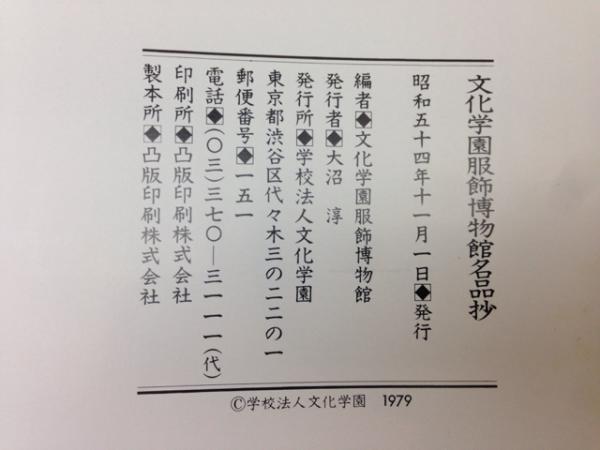 文化学園服飾博物館名品抄
昭和五十四年十一月一日◆発行
編者◆文化学園服飾博物館
発行者◆大沼 淳
発行所◆学校法人文化学園
東京都渋谷区代々木三の二二の一
郵便番号◆一五一
電話◆(〇三)三七〇―三一一一(代)
印刷所◆凸版印刷株式会社
製本所◆凸版印刷株式会社
©学校法人文化学園 1979